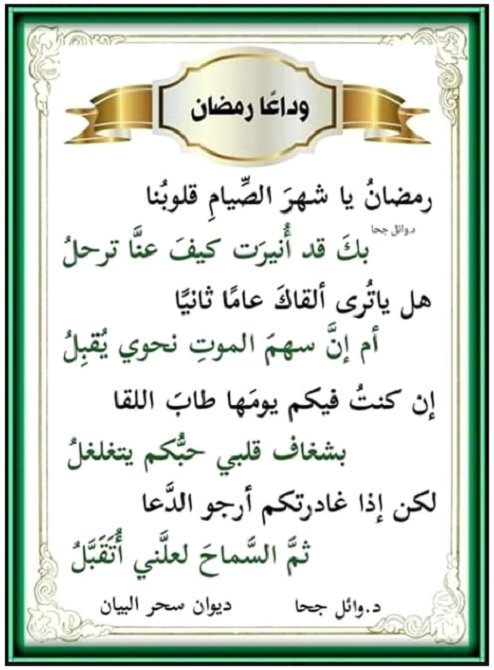 وداعًا رمضان
رمضانُ يا شهرَ الصِّيامِ قلوبُنا
د.وائل جحا
بكَ قد أُنيرَت كيفَ عنَّا ترحلُ
هل ياتُرى ألقاكَ عامًا ثانيًّا
أم إنَّ سهمَ الموتِ نحوي يُقبِلُ
إن كنتُ فيكم يومَها طابَ اللقا
بشغاف قلبي حبُّكم يتغلغلُ
لكن إذا غادرتكم أرجو الدَّعا
ثمَّ السَّماحَ لعلَّني أُتَقَبَّلُ
د.وائل جحا ديوان سحر البيان